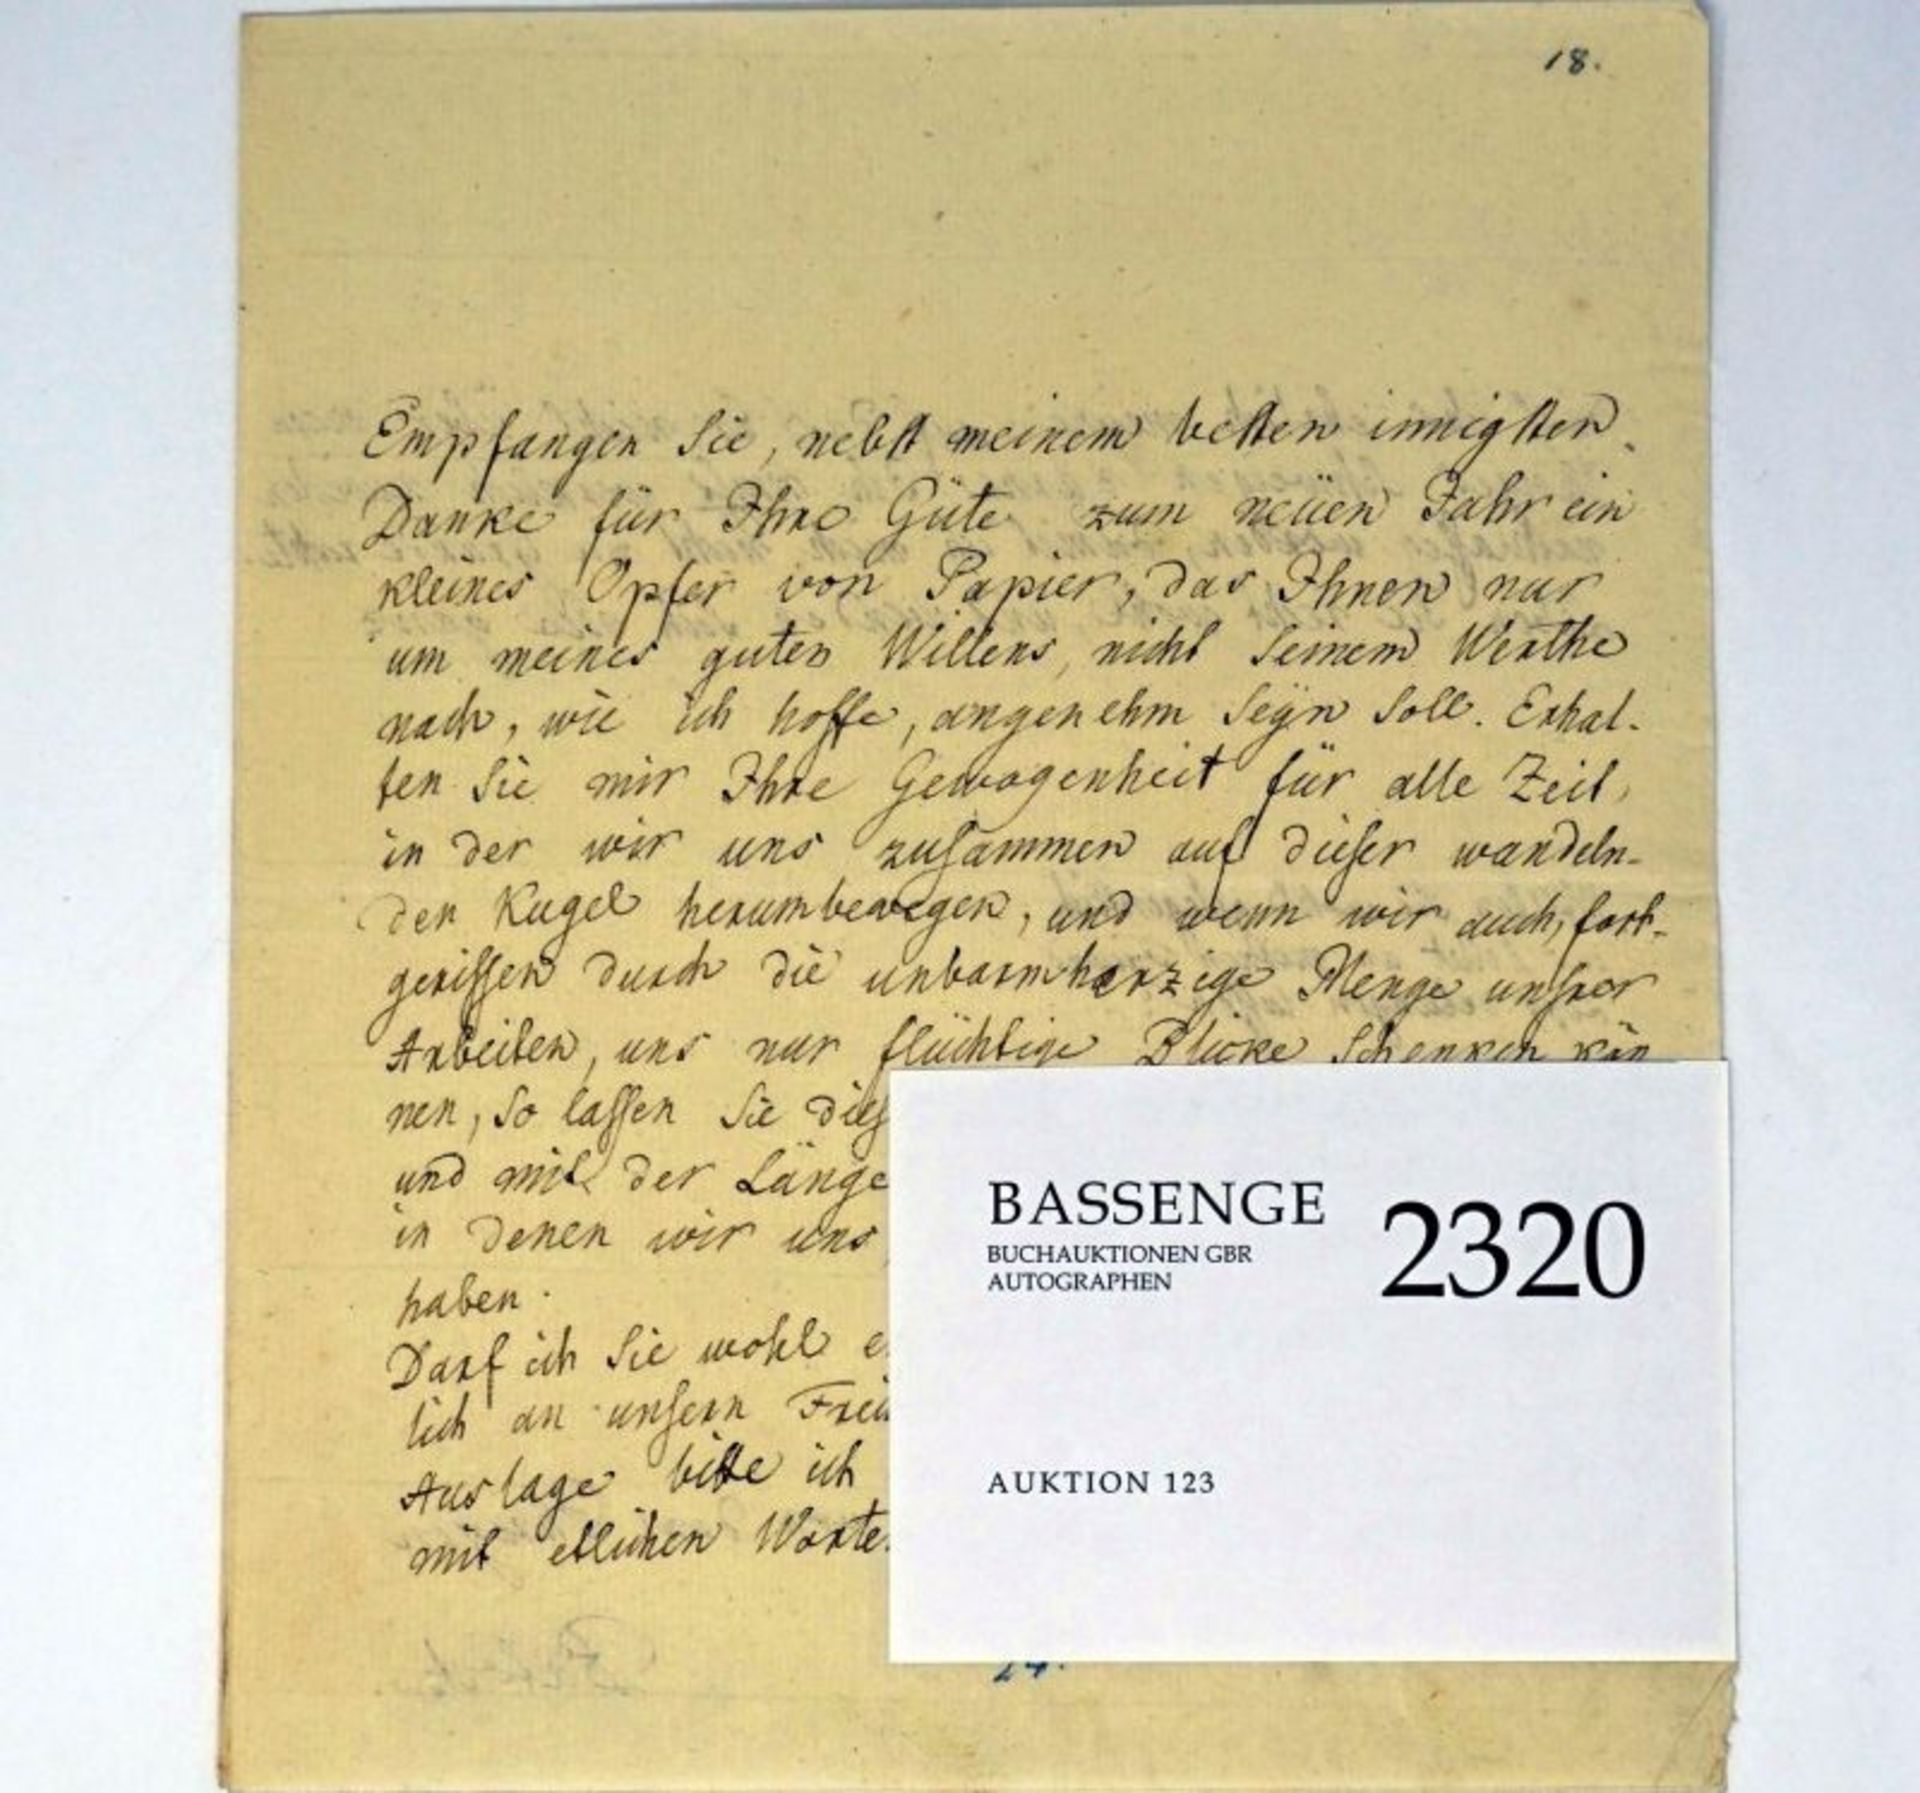 18.
Empfangen Sie, nebst meinem besten innigsten
Danke für Ihre Güte zum neüen Jahr ein
kleines Opfer von Papier, das Ihnen nur
um meines guten Willens, nicht seinem Werthe
nach, wie ich hoffe, angenehm seÿn soll. Erhal-
ten Sie mir Ihre Gewogenheit für alle Zeit,
in der wir uns zusammen auf dieser wandeln-
den Kugel herumbewegen, und wenn wir auch, fort-
gerissen durch die unbarmherzige Menge unsrer
Arbeiten, uns nur flüchtige Blicke schenken kön
nen, so lassen Sie dies
und mit der Länge
in denen wir uns
haben.
Darf ich Sie wohl e
lich an unsern Freu
Auslage bitte ich
mit etlichen Worte
BASSENGE 2320
BUCHAUKTIONEN GBR
AUTOGRAPHEN
AUKTION 123